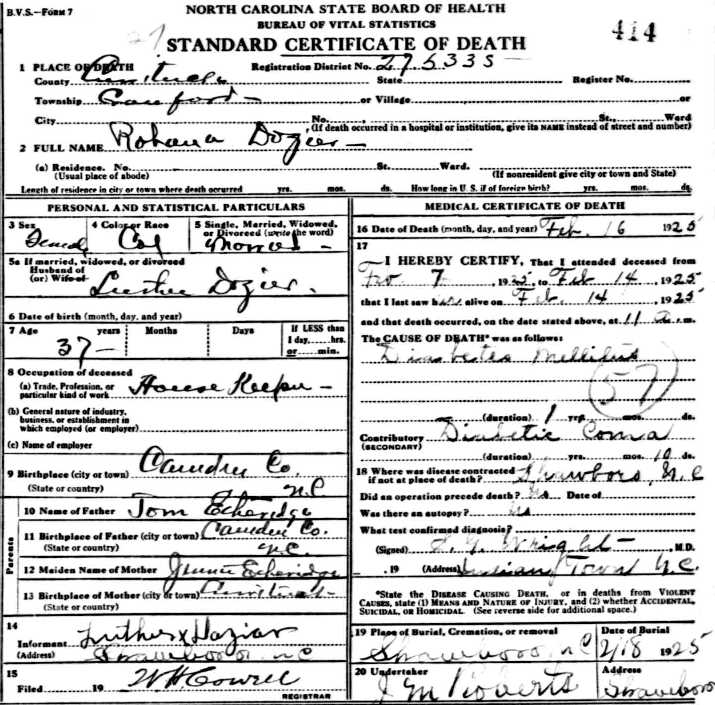 B.V.S.—Form 7
NORTH CAROLINA STATE BOARD OF HEALTH
BUREAU OF VITAL STATISTICS
STANDARD CERTIFICATE OF DEATH
414
1 PLACE OF DEATH Registration District No. 275335
County Currituck State Register No.
Township Crawford or Village or
City No. St., Ward
(If death occurred in a hospital or institution, give its NAME instead of street and number)
2 FULL NAME Rohana Dozier
(a) Residence. No. St. Ward.
(Usual place of abode) (If nonresident give city or town and State)
Length of residence in city or town where death occurred yrs. mos. ds. How long in U. S. if of foreign birth? yrs. mos. ds.
PERSONAL AND STATISTICAL PARTICULARS
3 Sex 4 Color or Race 5 Single, Married, Widowed, or Divorced (write the word)
Female Col Married
5a If married, widowed, or divorced
Husband of
(or) Wife of Luther Dozier
6 Date of birth (month, day, and year)
7 Age years Months Days If LESS than 1 day, hrs. or min.
37
8 Occupation of deceased
(a) Trade, Profession, or particular kind of work House Keeper
(b) General nature of industry, business, or establishment in which employed (or employer)
(c) Name of employer
9 Birthplace (city or town) Camden Co.
(State or country) N.C.
Parents
10 Name of Father Tom Etheridge
11 Birthplace of Father (city or town) Camden Co.
(State or country) N.C.
12 Maiden Name of Mother Etheridge
13 Birthplace of Mother (city or town) Currituck
(State or country)
14
Informant Luther x Dozier
(Address) Shawboro, NC
15
Filed 19 W H Cowell
REGISTRAR
MEDICAL CERTIFICATE OF DEATH
16 Date of Death (month, day, and year) Feb. 16 1925
17
I HEREBY CERTIFY, That I attended deceased from
7, 1925, to Feb 14, 1925
that I last saw her alive on Feb. 14, 1925
and that death occurred, on the date stated above, at 11 a.m.
The CAUSE OF DEATH* was as follows:
Diabetes Mellitus
57
(duration) 1 yrs. mos. ds.
Contributory Diabetic Coma
(SECONDARY)
(duration) yrs. mos. 10 ds.
18 Where was disease contracted
if not at place of death? Shawboro, N.C
Did an operation precede death? No Date of
Was there an autopsy? No
What test confirmed diagnosis?
(Signed) Wright M.D.
, 19 (Address) Indian Town N.C.
*State the DISEASE CAUSING DEATH, or in deaths from VIOLENT CAUSES, state (1) MEANS AND NATURE OF INJURY, and (2) whether ACCIDENTAL, SUICIDAL, OR HOMICIDAL. (See reverse side for additional space.)
19 Place of Burial, Cremation, or removal Date of Burial
Shawboro, N C 2/18 1925
20 Undertaker Address
J M Roberts Shawboro